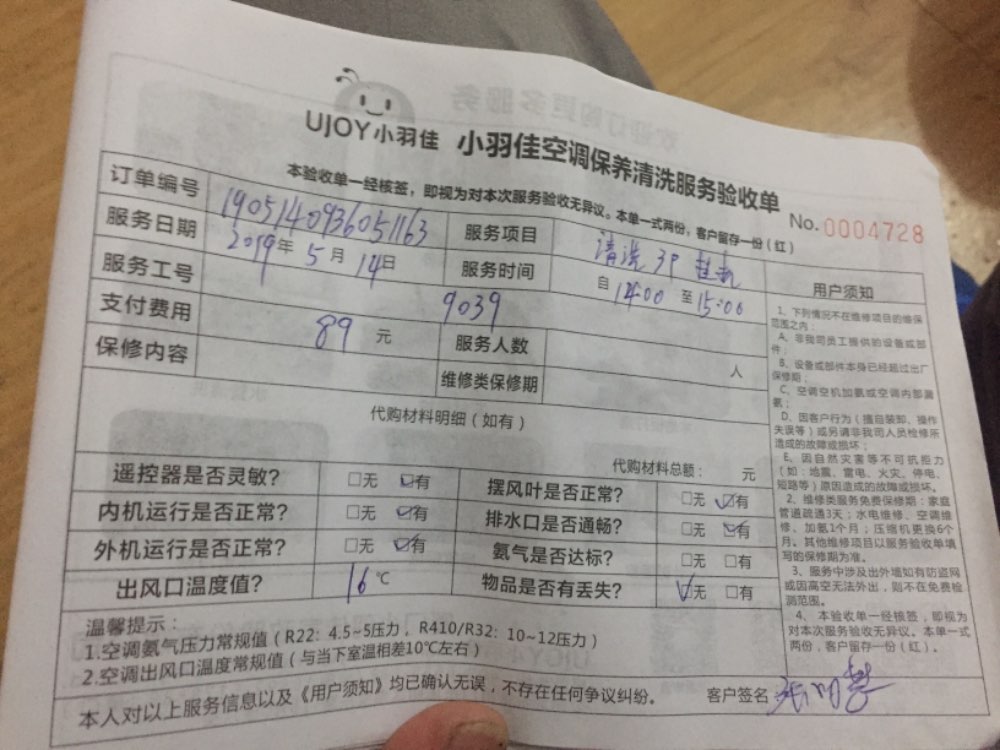 UJOY小羽佳 小羽佳空调保养清洗服务验收单
本验收单一经核签，即视为对本次服务验收无异议。本单一式两份，客户留存一份（红）
No.0004728
订单编号 1905140936051163 服务项目 清洗3P挂机
服务日期 2019年5月14日 服务时间 自14:00至15:00
服务工号 9039
支付费用 89元 服务人数 人
保修内容 维修类保修期
代购材料明细（如有）
代购材料总额： 元
遥控器是否灵敏？ □无 ☑有 摆风叶是否正常？ □无 ☑有
内机运行是否正常？ □无 ☑有 排水口是否通畅？ □无 ☑有
外机运行是否正常？ □无 ☑有 氨气是否达标？ □无 □有
出风口温度值？ 16℃ 物品是否有丢失？ ☑无 □有
温馨提示：
1.空调氨气压力常规值（R22：4.5~5压力，R410/R32：10~12压力）
2.空调出风口温度常规值（与当下室温相差10℃左右）
本人对以上服务信息以及《用户须知》均已确认无误，不存在任何争议纠纷。 客户签名
用户须知
1、下列情况不在维修项目的维保
范围之内：
A、非我司员工提供的设备或部
件；
B、设备或部件本身已经超过出厂
保修期；
C、空调空机加氨或空调内部漏
氨；
D、因客户行为（擅自装卸、操作
失误等）或另请非我司人员检修所
造成的故障或损坏；
E、因自然灾害等不可抗拒力
（如：地震、雷电、火灾、停电、
短路等）原因造成的故障或损坏。
2、维修类服务免费保修期：家庭
管道疏通3天；水电维修、空调维
修、加氨1个月；压缩机更换6个
月。其他维修项目以服务验收单填
写的保修期为准。
3、服务中涉及出外墙如有防盗网
或因高空无法外出，则不在免费检
测范围。
4、本验收单一经核签，即视为
对本次服务验收无异议。本单一式
两份，客户留存一份（红）。